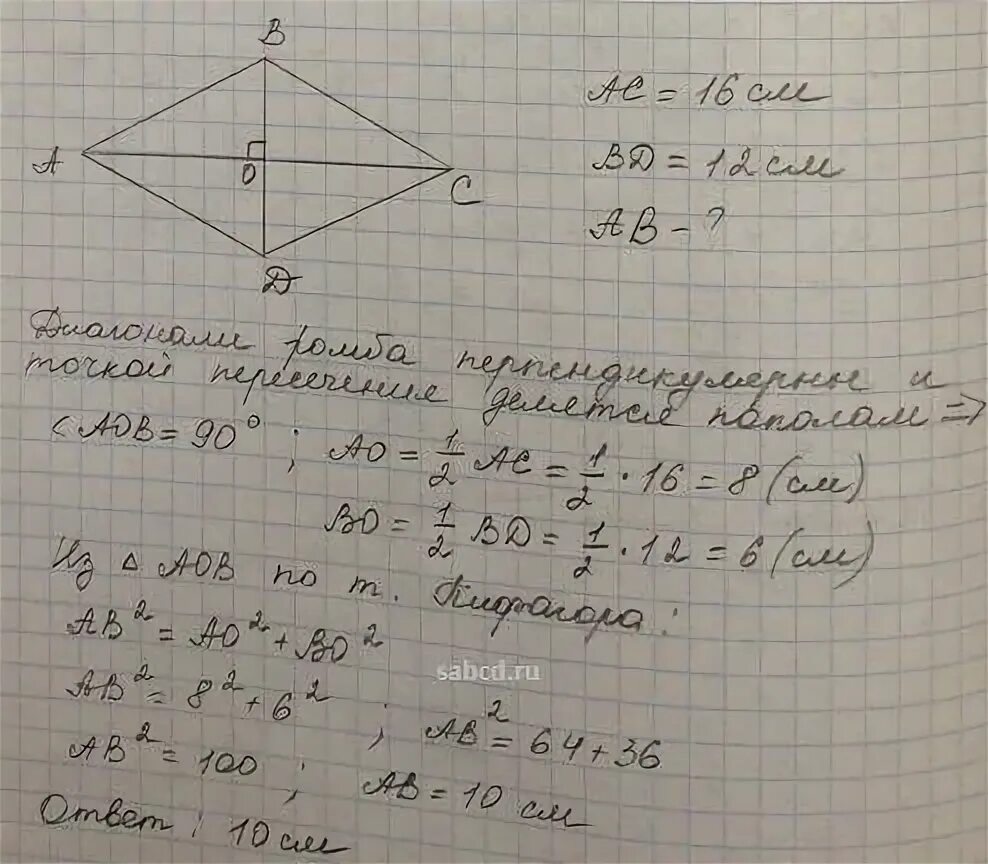 B
A
O
C
D
AC = 16 см
BD = 12 см
AB - ?
Диагонали ромба перпендикулярны и
точкой пересечения делятся пополам =>
< AOB = 90° ; AO = 1/2 AC = 1/2 · 16 = 8 (см)
BO = 1/2 BD = 1/2 · 12 = 6 (см)
Из △ AOB по т. Пифагора :
AB² = AO² + BO²
AB² = 8² + 6² ; AB² = 64 + 36
AB² = 100 ; AB = 10 см
Ответ : 10 см
sabcd.ru